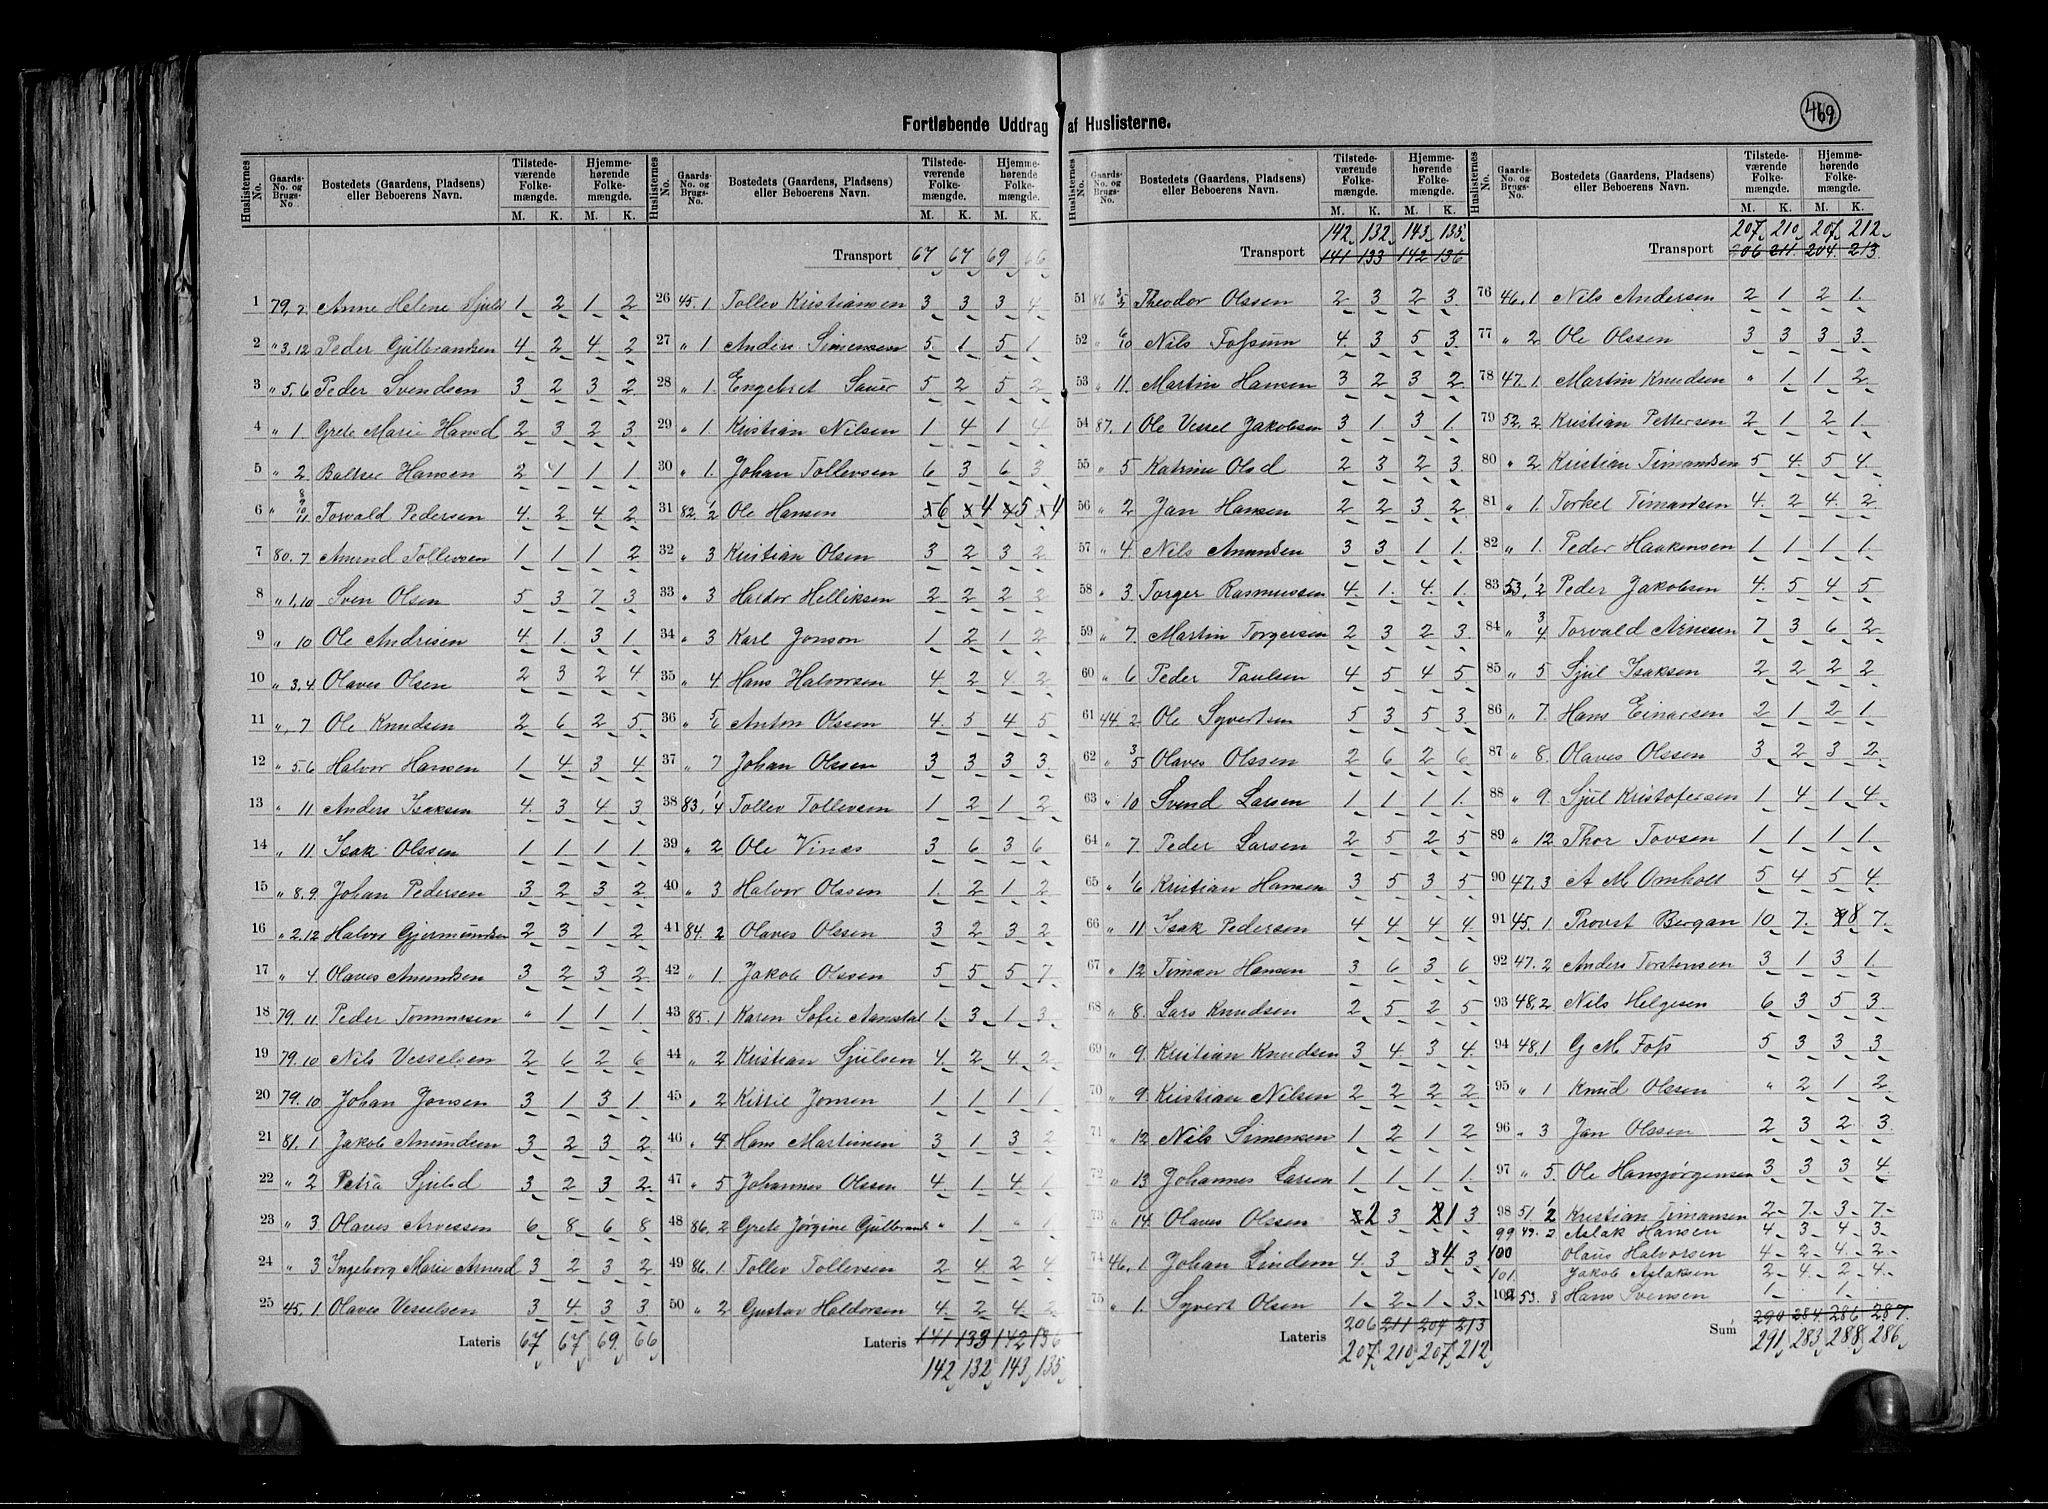 469
Fortløbende Uddrag af Huslisterne.
Huslisternes No. Gaards-No. og Brugs-No. Bostedets (Gaardens, Pladsens) eller Beboerens Navn. Tilstedeværende Folkemængde. M. K. Hjemmehørende Folkemængde. M. K.
1 79,2 Anne Helene Sjulsd 1 2 1 2
2 " 3.12 Peder Gulbrandsen 4 2 4 2
3 " 5.6 Peder Svendsen 3 2 3 2
4 " 1. Grete Marie Hansd 2 3 2 3
5 " 2 Baltser Hansen 2 1 1 1
6 " 8 9 10 11 Torvald Pedersen 4 2 4 2
7 80.7 Amund Tollevsen 1 1 1 2
8 " 1,10 Sven Olsen 5 3 7 3
9 " 10 Ole Andrisen 4 1 3 1
10 " 3.4 Olaves Olsen 2 3 2 4
11 " 7 Ole Knudsen 2 6 2 5
12 " 5.6 Halvor Hansen 1 4 3 4
13 " 11 Anders Isaksen 4 3 4 3
14 " 11 Isak Olssen 1 1 1 1
15 " 8.9 Johan Pedersen 3 2 3 2
16 " 2,12 Halvor Gjermundsen 2 3 1 2
17 " 4 Olaves Amundsen 3 2 3 2
18 79.11 Peder Tommesen " 1 1 1
19 79.10 Nils Vesselsen 2 6 2 6
20 79.10 Johan Jonsen 3 1 3 1
21 81.1 Jakob Amundsen 3 2 3 2
22 " 2 Petra Sjulsd 3 2 3 2
23 " 3. Olaves Arvessen 6 8 6 8
24 " 3 Ingeborg Marie Arvesd 3 2 3 2
25 45.1 Olaves Vesselsen 3 4 3 3
Lateris 67 67 69 66
Transport 67 67 69 66
26 45.1 Tollev Kristiansen 3 3 3 4
27 " 1 Anders Simensen 5 1 5 1
28 " 1. Engebret Sauer 5 2 5 2
29 " 1 Kristian Nilsen 1 4 1 4
30 " 1. Johan Tollevsen 6 3 6 3
31 82. 1/2 Ole Hansen 6 4 5 4
32 " 3 Kristian Olsen 3 2 3 2
33 " 3 Hardor Helliksen 2 2 2 2
34 " 3 Karl Jonson 1 2 1 2
35 " 4 Hans Halvorsen 4 2 4 2
36 " 5/6 Anton Olssen 4 5 4 5
37 " 7 Johan Olssen 3 3 3 3
38 83. 1/4 Tollev Tollevsen 1 2 1 2
39 " 2 Ole Vines 3 6 3 6
40 " 3 Halvor Olssen 1 2 1 2
41 84.2 Olaves Olssen 3 2 3 2
42 " 1. Jakob Olssen 5 5 5 7
43 85.1 Karen Sofie Aamodal 1 3 1 3
44 " 2 Kristian Sjulsen 4 2 4 2
45 " 2 Kittil Jonsen 1 1 1 1
46 " 4 Hans Martinsen 3 1 3 2
47 " 5 Johannes Olssen 4 1 4 1
48 86.2 Grete Jørgine Gulbrands " 1 " 1
49 86.1 Tollev Tollevsen 2 4 2 4
50 " 2 Gustav Haldorsen 4 2 4 2
Lateris 141 133 142 136
142 132 143 135
142 132 143 135
Transport 141 133 142 136
51 86 3/5 Theodor Olssen 2 3 2 3
52 " 6/10 Nils Fossum 4 3 5 3
53 " 11. Martin Hansen 3 2 3 2
54 87.1 Ole Vessel Jakobsen 3 1 3 1
55 " 5 Katrine Olsd 2 3 2 3
56 " 2 Jan Hansen 2 2 3 2
57 " 4. Nils Amundsen 3 3 1 1
58 " 3 Torger Rasmussen 4 1 4 1
59 " 7. Martin Torgersen 2 3 2 3
60 " 6 Peder Paulsen 4 5 4 5
61 44.2 Ole Syvertsen 5 3 5 3
62 " 3/5 Olaves Olssen 2 6 2 6
63 " 10 Svend Larsen 1 1 1 1
64 " 7. Peder Larsen 2 5 2 5
65 " 1/6 Kristian Hansen 3 5 3 5
66 " 11 Isak Pedersen 4 4 4 4
67 " 12 Timan Hansen 3 6 3 6
68 " 8. Lars Knudsen 2 5 2 5
69 " 9. Kristian Knudsen 3 4 3 4
70 " 9. Kristian Nilsen 2 2 2 2
71 " 12 Nils Simensen 1 2 1 2
72 " 13 Johannes Larsen 1 1 1 1
73 " 14. Olaves Olssen 2 3 1 3
74 46.1 Johan Lindem 4 3 4 3
75 " 1. Syvert Olsen 1 2 1 3
Lateris 206 211 204 213
207 210 207 212
207 210 207 212
Transport 206 211 204 213
76 46,1 Nils Andersen 2 1 2 1
77 " 2 Ole Olssen 3 3 3 3
78 47.1 Martin Knudsen " 1 1 2
79 52.2 Kristian Pettersen 2 1 2 1
80 " 2 Kristian Timandsen 5 4 5 4
81 " 1. Torkel Timandsen 4 2 4 2
82 " 1. Peder Haakensen 1 1 1 1
83 53, 1/2 Peder Jakobsen 4 5 4 5
84 " 3/4 Torvald Arnesen 7 3 6 2
85 " 5 Sjul Isaksen 2 2 2 2
86 " 7. Hans Einarsen 2 1 2 1
87 " 8. Olaves Olssen 3 2 3 2
88 " 9 Sjul Kristofersen 1 4 1 4
89 " 12 Thor Tovsen 1 1 1 1
90 47.3 A M Omholt 5 4 5 4
91 45.1 Provst Bergan 10 7 8 7
92 47.2 Anders Torstensen 3 1 3 1
93 48,2 Nils Helgesen 6 3 5 3
94 48,1 G M Foss 5 3 3 3
95 " 1 Knud Olssen " 2 1 2
96 " 3 Jan Olssen 2 3 2 3
97 " 5. Ole Hansjørgensen 3 3 3 4
98 51. 1/2 Kristian Timansen 2 7 3 7
99 49.2 Aslak Hansen 4 3 4 3
100 Olaus Halvorsen 4 2 4 2
101. Jakob Aslaksen 2 4 2 4
102 53. 8 Hans Svensen 1 - 1 -
Sum 290 284 286 287
291 283 288 286